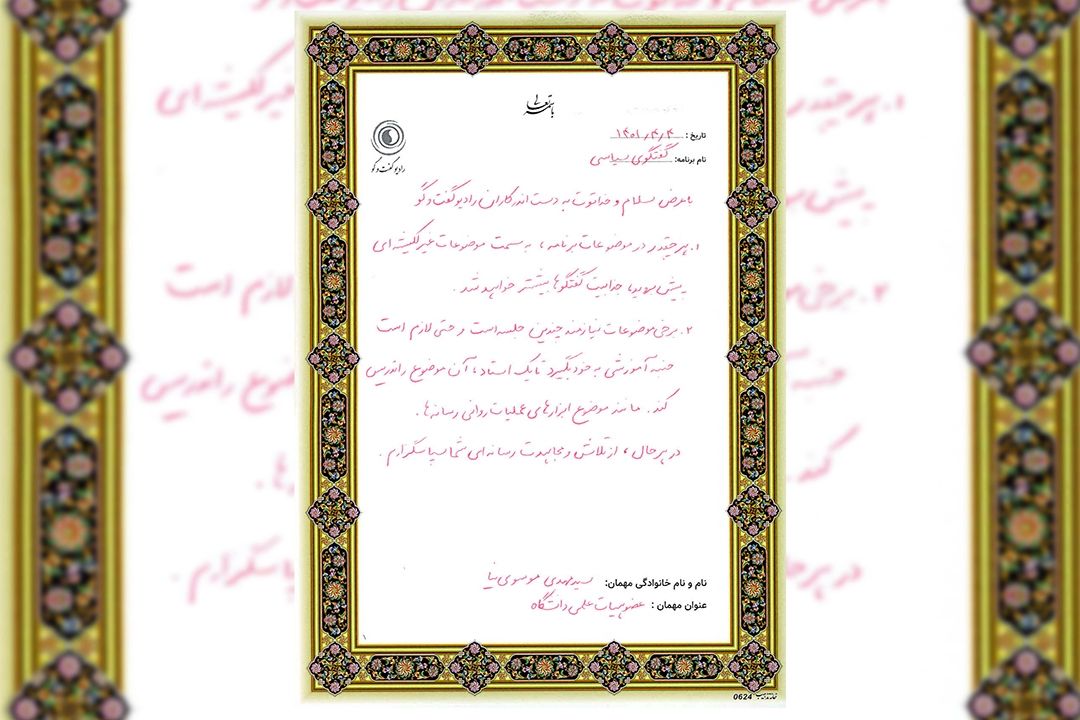 باسمه تعالی
تاریخ: ۱۴۰۱/۴/۴
نام برنامه: گفتگوی سیاسی
رادیو گفت و گو
با عرض سلام و خدا قوت به دست اندرکاران رادیو گفت و گو
۱. هر چقدر در موضوعات برنامه، به سمت موضوعات غیر کلیشه ای
پیش بروید، جذابیت گفتگوها بیشتر خواهد شد.
۲. برخی موضوعات نیازمند چندین جلسه است و حتی لازم است
جنبه آموزشی به خود بگیرد تا یک استاد، آن موضوع را تدریس
کند. مانند موضوع ابزارهای عملیات روانی رسانه ها.
در هر حال، از تلاش و مجاهدت رسانه ای شما سپاسگزارم.
نام و نام خانوادگی مهمان: سید مهدی موسوی نیا
عنوان مهمان: عضو هیات علمی دانشگاه
۱
0624